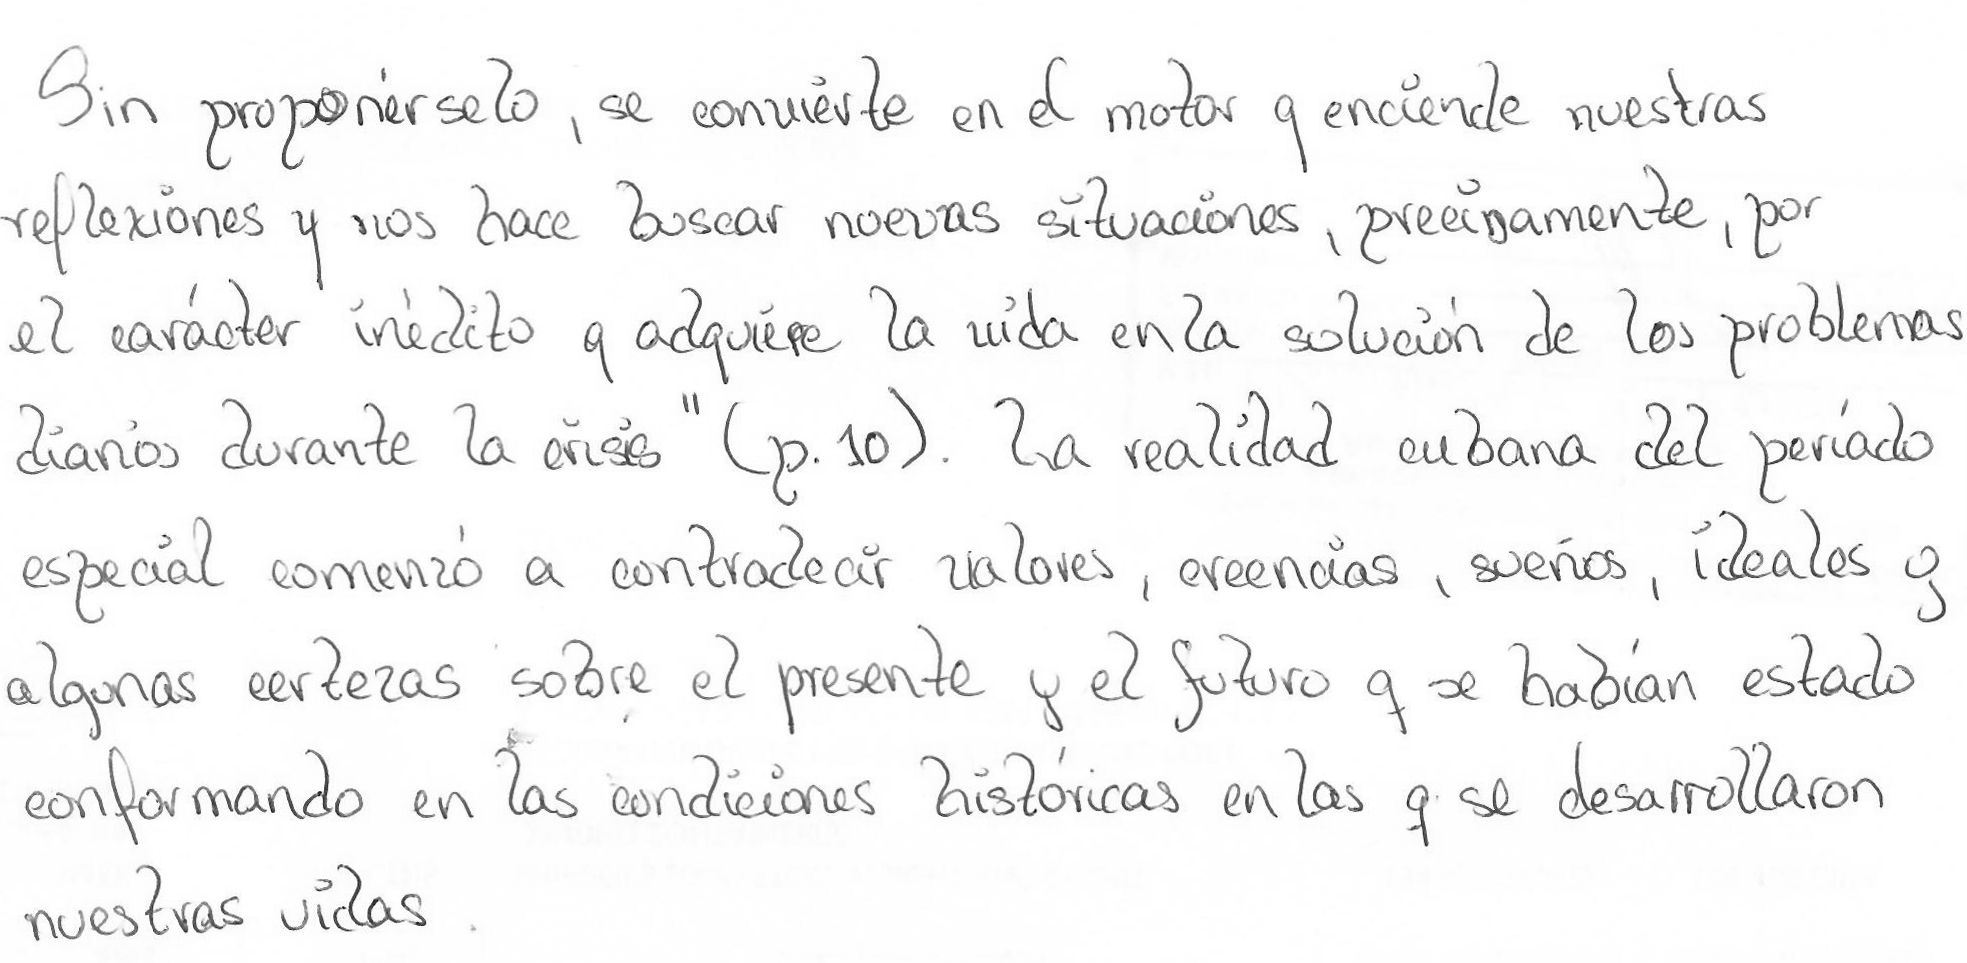 Sin proponérselo, se convierte en el motor q enciende nuestras
reflexiones y nos hace buscar nuevas situaciones, precisamente, por
el carácter inédito q adquiere la vida en la solución de los problemas
diarios durante la crisis" (p. 10). La realidad cubana del período
especial comenzó a contradecir valores, creencias, sueños, ideales y
algunas certezas sobre el presente y el futuro q se habían estado
conformando en las condiciones históricas en las q se desarrollaron
nuestras vidas.